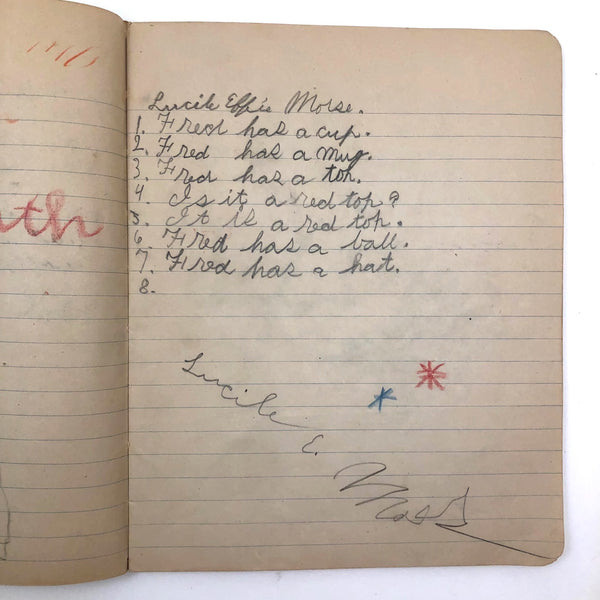 uth
Lucile Effie Morse.
1. Fred has a cup.
2. Fred has a mug.
3. Fred has a top.
4. Is it a red top?
5. It is a red top.
6. Fred has a ball.
7. Fred has a hat.
8.
Lucile
E.